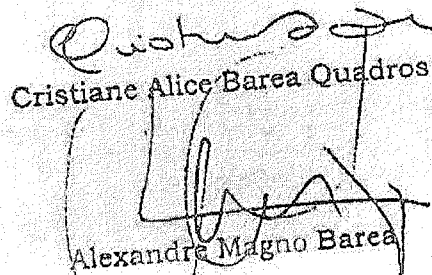 Cristiane Alice Barea Quadros
Alexandre Magno Barea